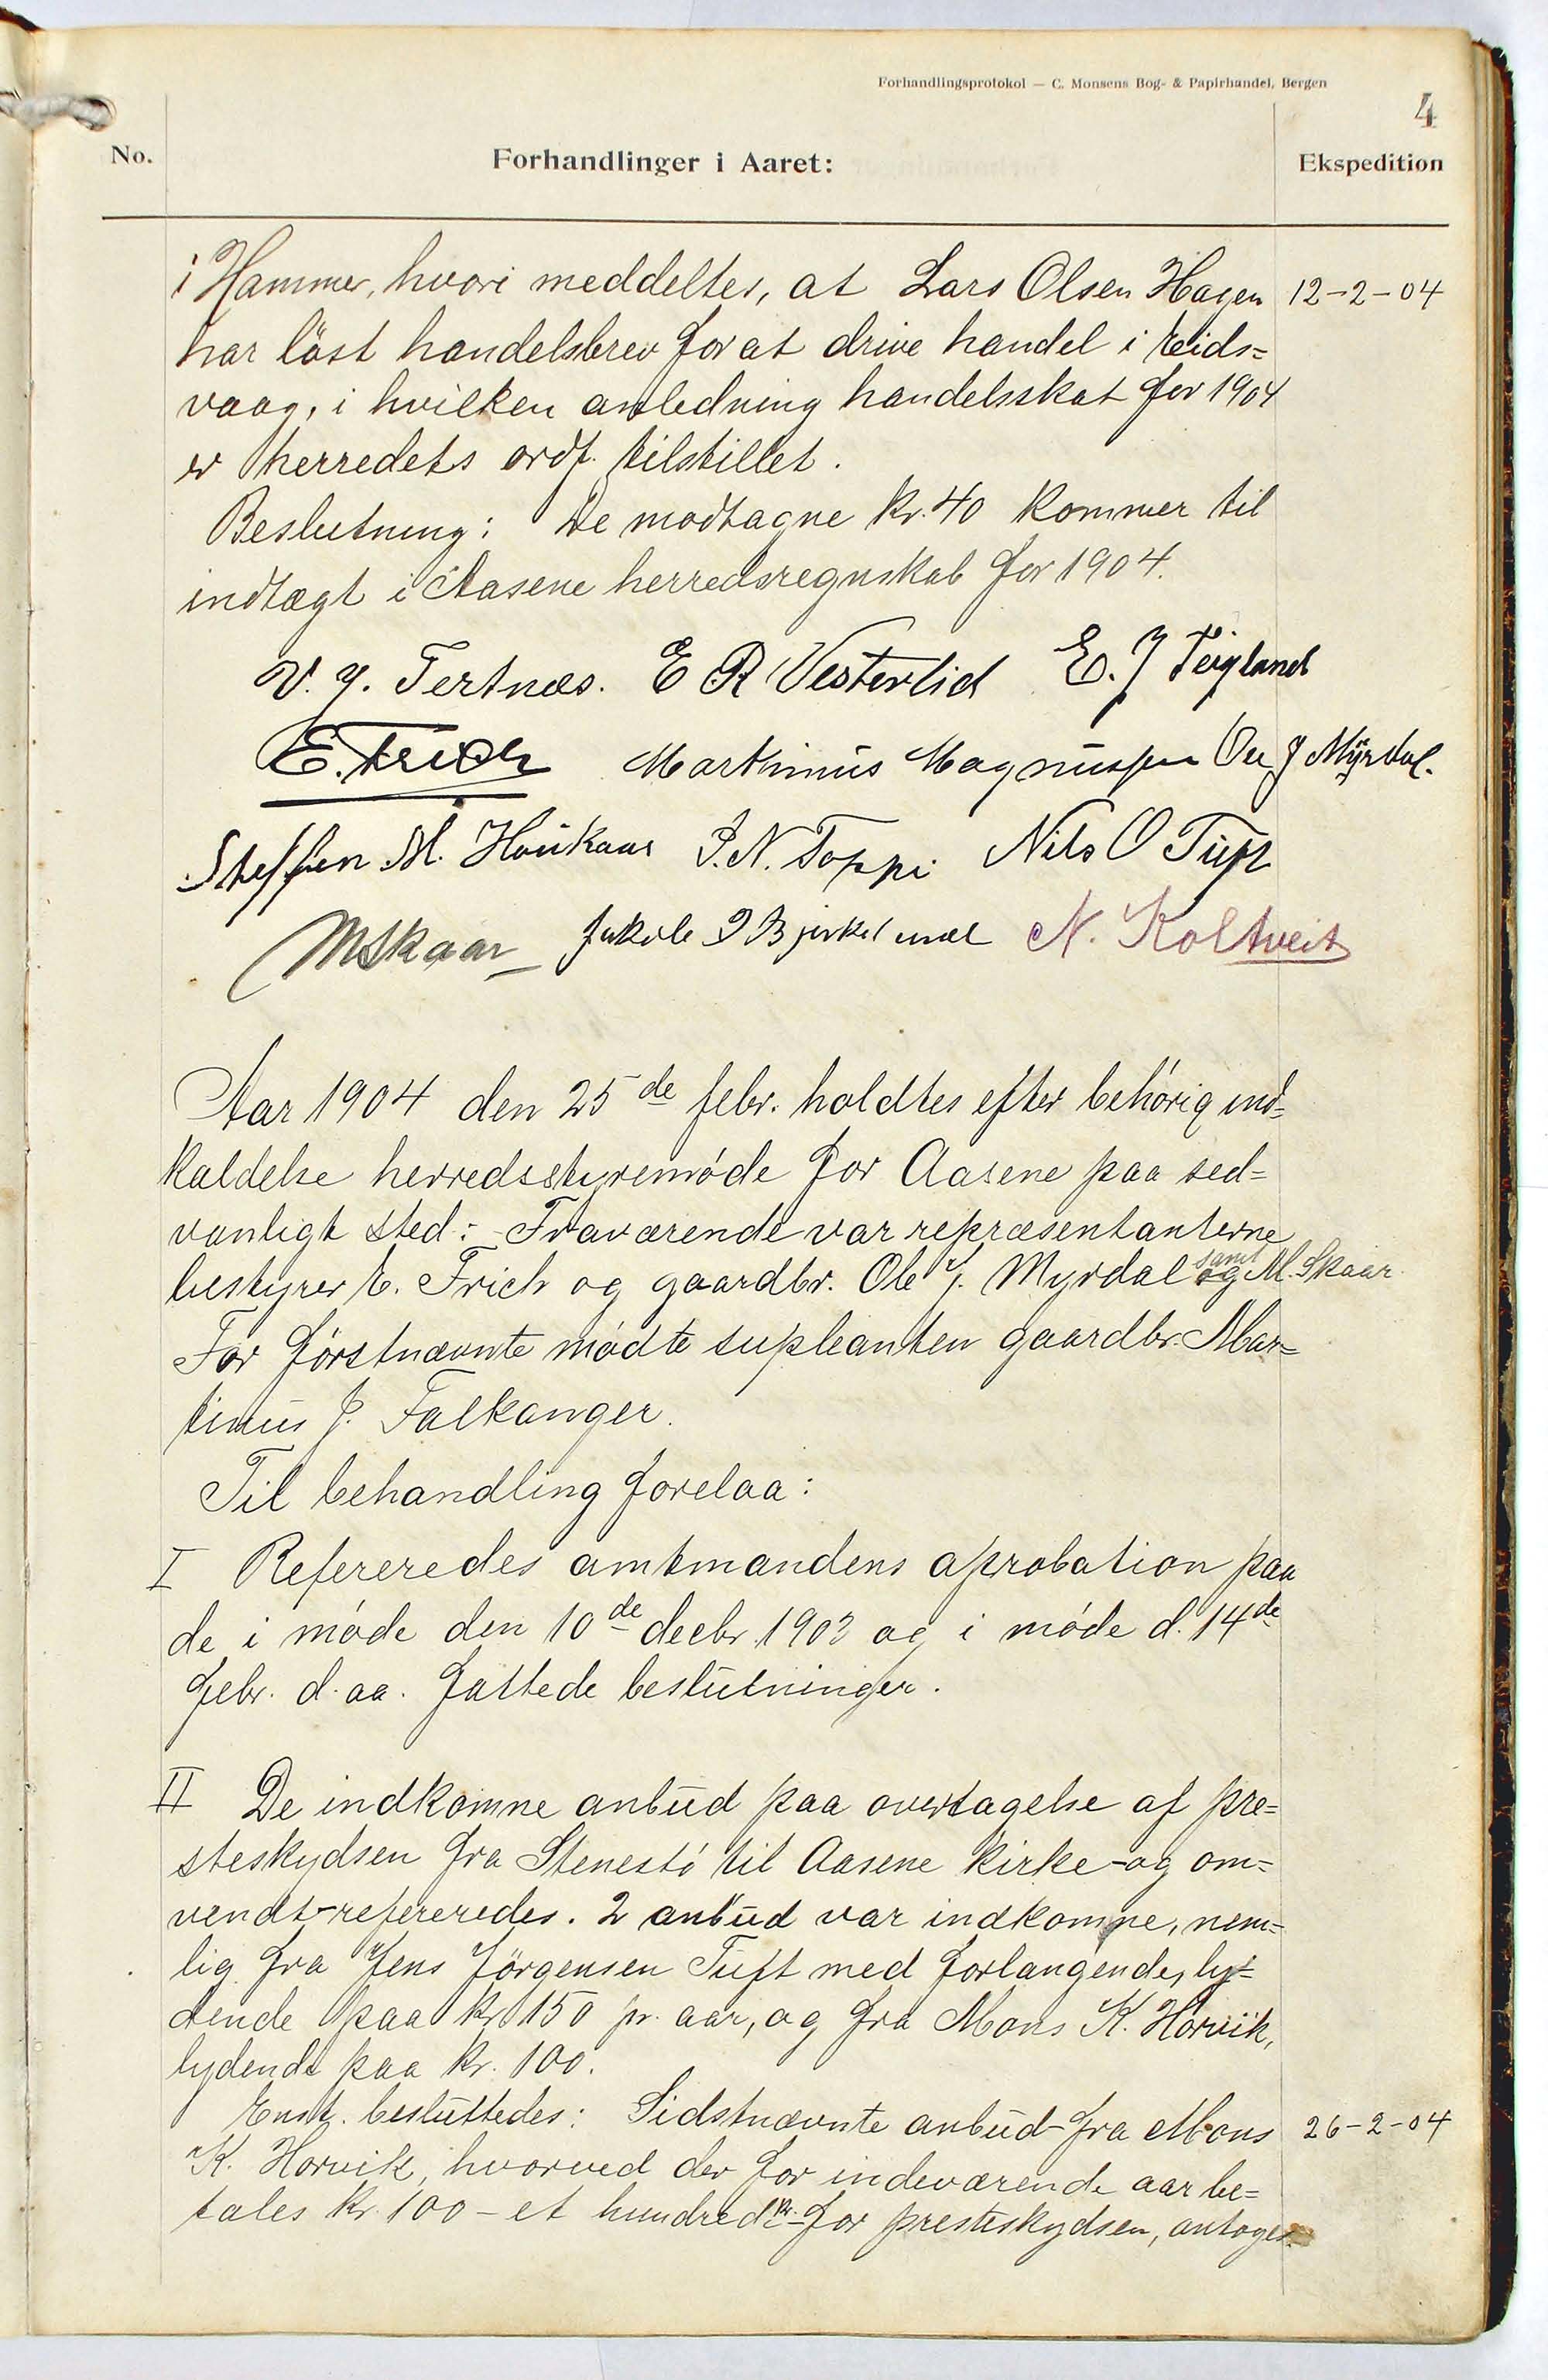 Forhandlingsprotokol — C. Monsens Bog- & Papirhandel, Bergen
4
No.
Forhandlinger i Aaret:
Ekspedition
i Hammer, hvori meddeltes, at Lars Olsen Hagen 12-2-04
har löst handelsbrev for at drive handel i Eids=
vaag, i hvilken anledning handelsskat for 1904
er herredets ordf. tilstillet.
Beslutning: De modtagne kr. 40 kommer til
indtægt i Aasene herredsregnskab for 1904.
V. J. Tertnæs. E R Vesterlid E. J Teigland
E. Frich Martinius Magnussen Ole J Myrdal.
Steffen M. Haukaas P. N. Toppe Nils O Tuft
MSkaar Jakob J Bjirkelund N. Koltveit
Aar 1904 den 25de febr. holdtes efter behörig ind=
kaldelse herredsstyremöde for Aasene paa sed=
vanligt sted: Fraværende var repræsentanterne
bestyrer E. Frich og gaardbr. Ole J. Myrdal samt M. Skaar
For förstnævnte mödte supleanten gaardbr. Mar=
tinus J. Falkanger.
Til behandling forelaa:
I Refereredes amtmandens aprobation paa
de i möde den 10de decbr. 1903 og i möde d. 14de
febr. d. aa. fattede beslutninger.
II De indkomne anbud paa overtagelse af pre=
steskydsen fra Stenestö til Aasene kirke-og om=
vendt-refereredes. 2 anbud var indkomne, nem=
lig fra Jens Jörgensen Tuft med forlangende, ly=
dende paa kr 150 pr. aar, og fra Mons K. Horvik,
lydende paa kr. 100.
Enst. besluttedes: Sidstnævnte anbud fra Mons 26-2-04
K. Horvik, hvorved der for indeværende aar be=
tales kr. 100 - et hundrede kr. - for presteskydsen, antoges.